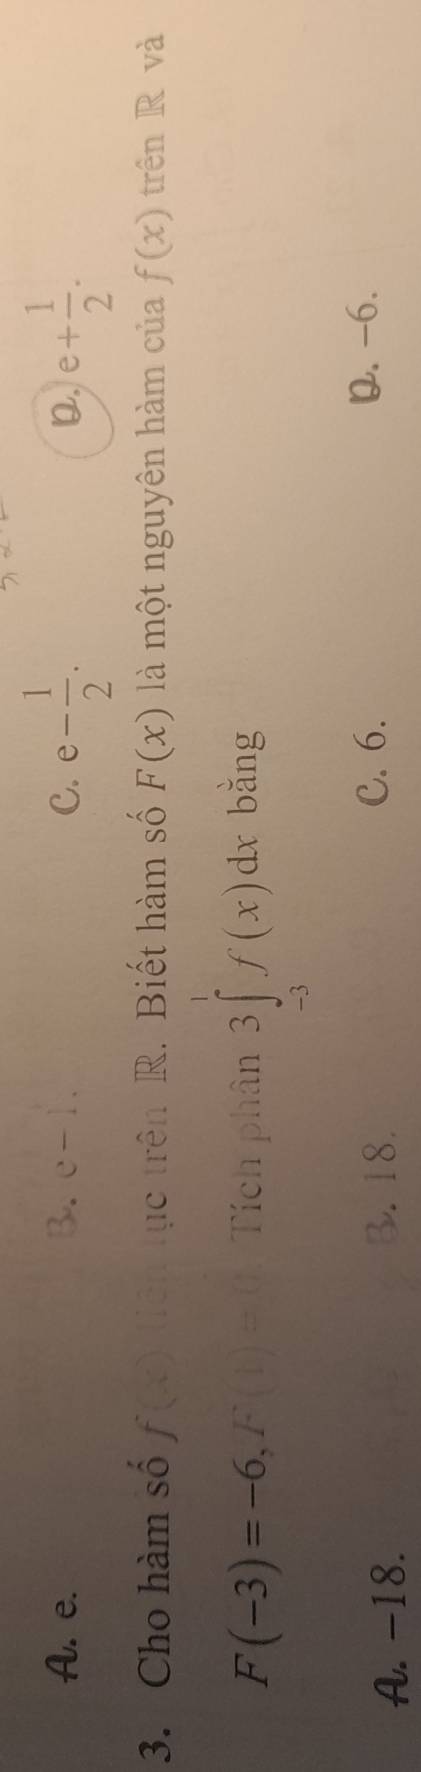 A. e. B. e − 1. C. e − 1/2. D. e + 1/2.
3. Cho hàm số f(x) liên tục trên ℝ. Biết hàm số F(x) là một nguyên hàm của f(x) trên ℝ và
F(−3) = −6, F(1) = 0. Tích phân 3∫₋₃¹ f(x)dx bằng
A. −18. B. 18. C. 6. D. −6.